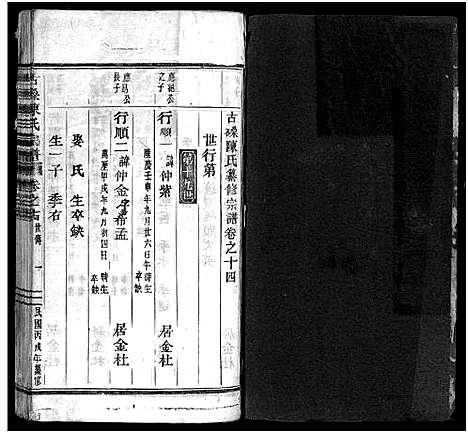 古磉陳氏纂修宗譜卷之十四
世行第
第十九世
應昶公之子
行順一 諱仲紫 居金杜
隆慶壬申年九月廿六日午時生 卒缺
應昜公長子
行順二 諱仲金 字希孟 居金杜
萬曆甲戌年九月初四日 時生 卒缺
娶 氏 生卒缺
生一子 季右
民國丙戌年纂修